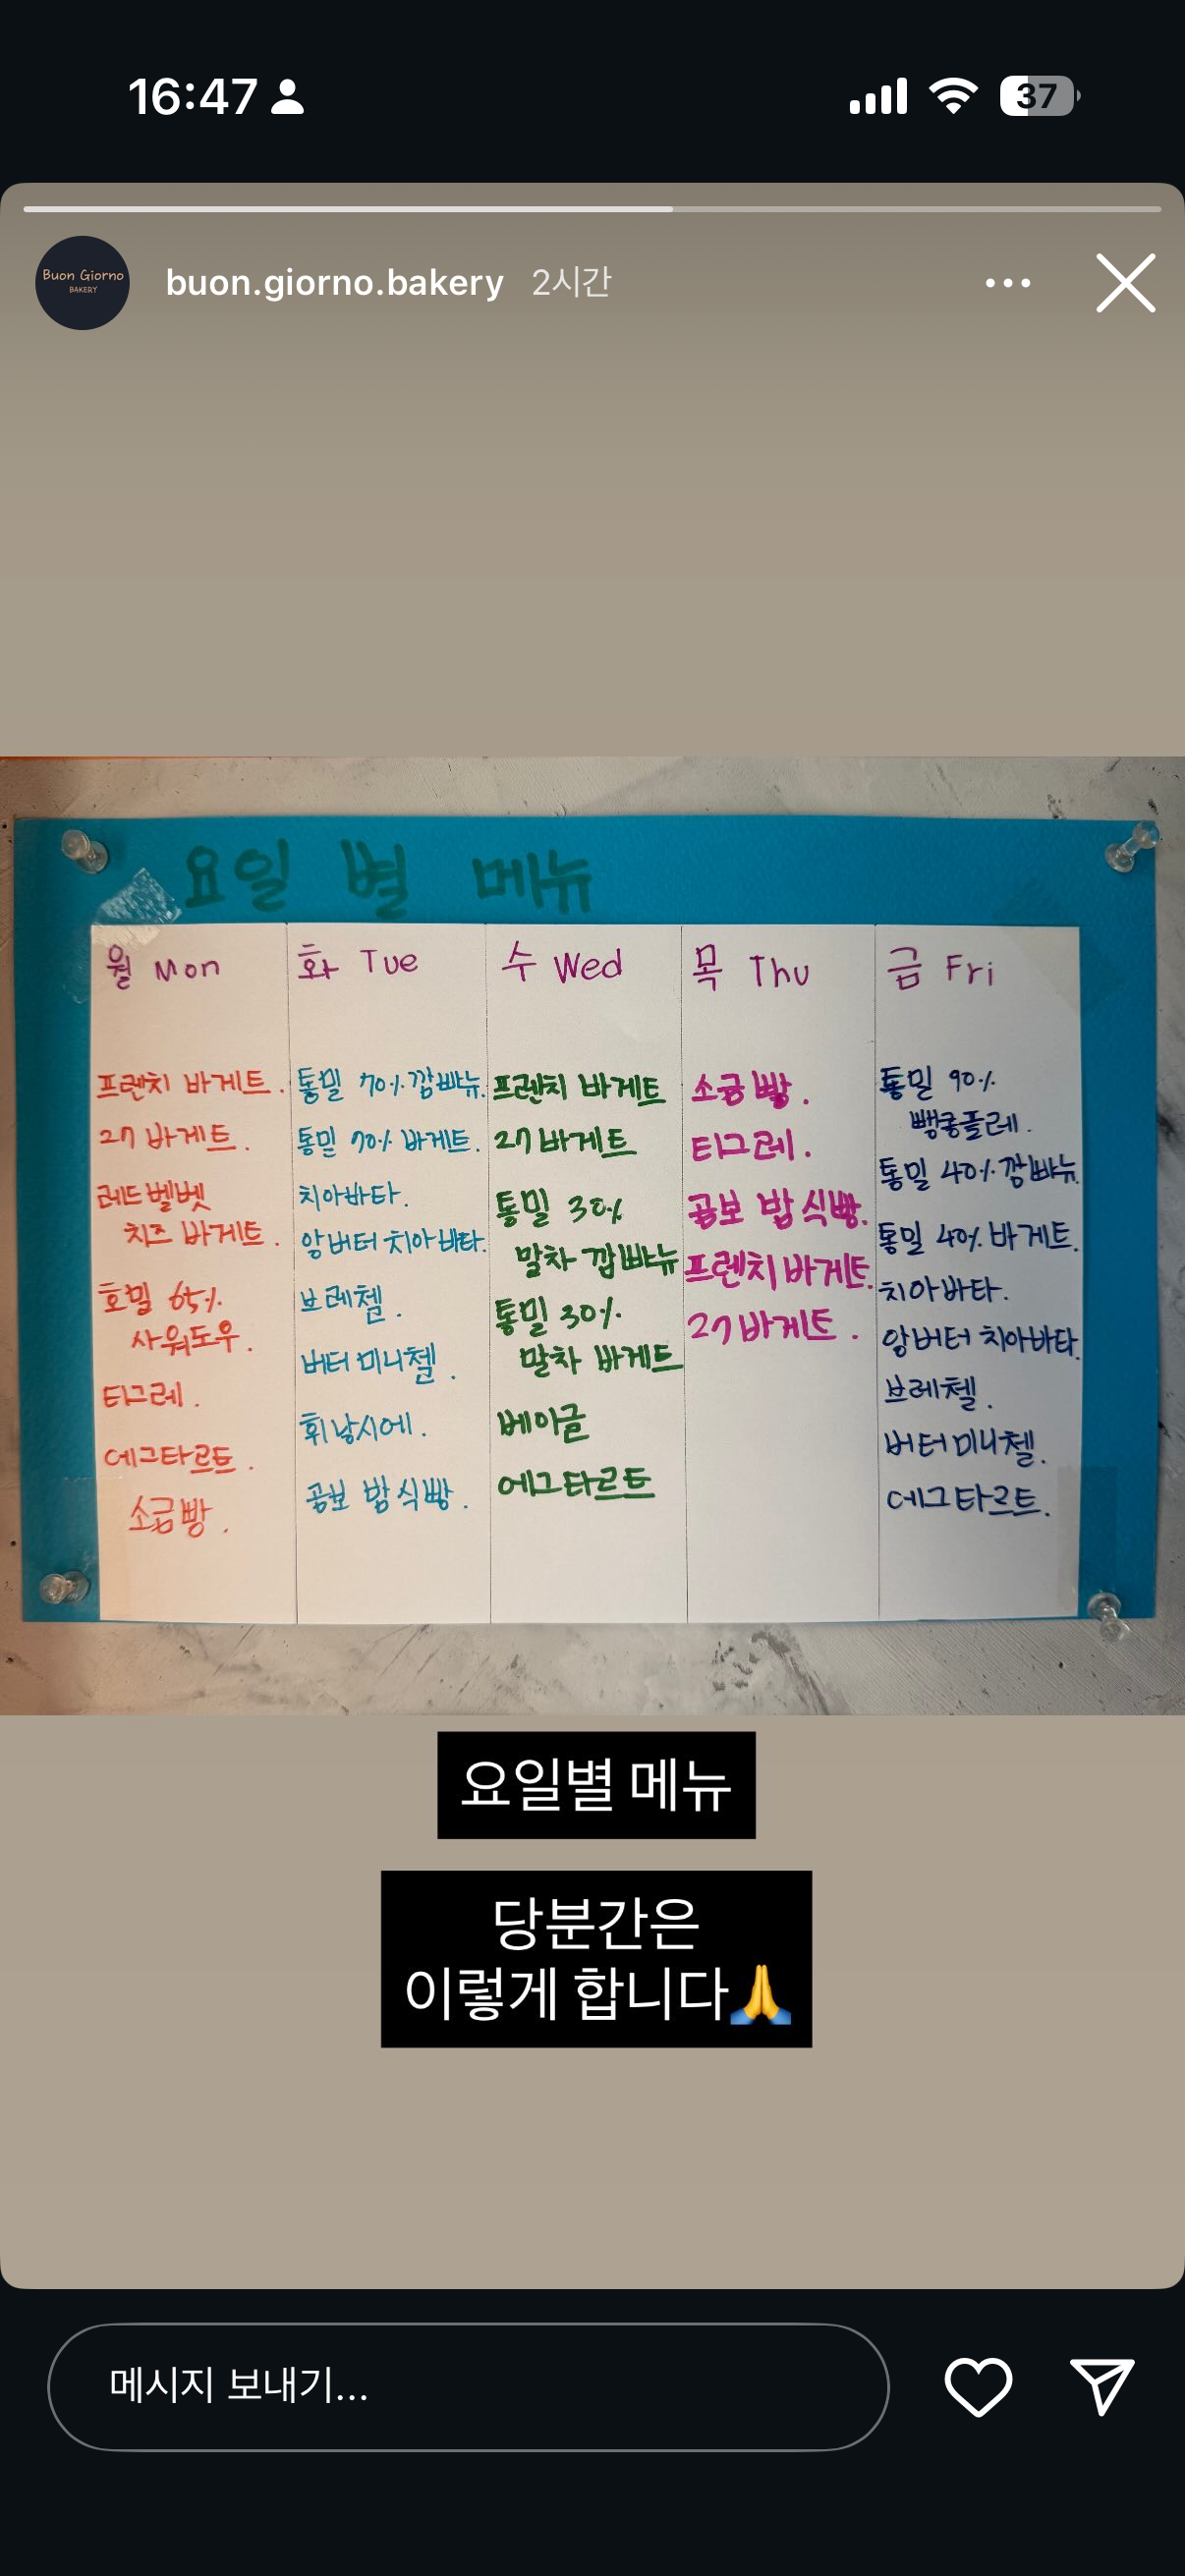 16:47
37
Buon Giorno
BAKERY
buon.giorno.bakery 2시간
요일 별 메뉴
월 Mon
프렌치 바게트.
27 바게트.
레드벨벳
치즈 바게트.
호밀 65%
사워도우.
티그레.
에그타르트.
소금빵.
화 Tue
통밀 70% 깜빠뉴.
통밀 70% 바게트.
치아바타.
앙버터 치아바타.
브레첼.
버터 미니첼.
휘낭시에.
곰보 밤 식빵.
수 Wed
프렌치 바게트
27 바게트
통밀 30%
말차 깜빠뉴
통밀 30%
말차 바게트
베이글
에그타르트
목 Thu
소금빵.
티그레.
곰보 밤 식빵.
프렌치 바게트.
27 바게트.
금 Fri
통밀 90%
뺑콩플레.
통밀 40% 깜빠뉴.
통밀 40% 바게트.
치아바타.
앙버터 치아바타.
브레첼.
버터 미니첼.
에그타르트.
요일별 메뉴
당분간은
이렇게 합니다🙏
메시지 보내기...